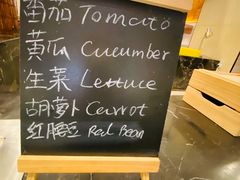 番茄 Tomato
黄瓜 Cucumber
生菜 Lettuce
胡萝卜 Carrot
红腰豆 Red Bean